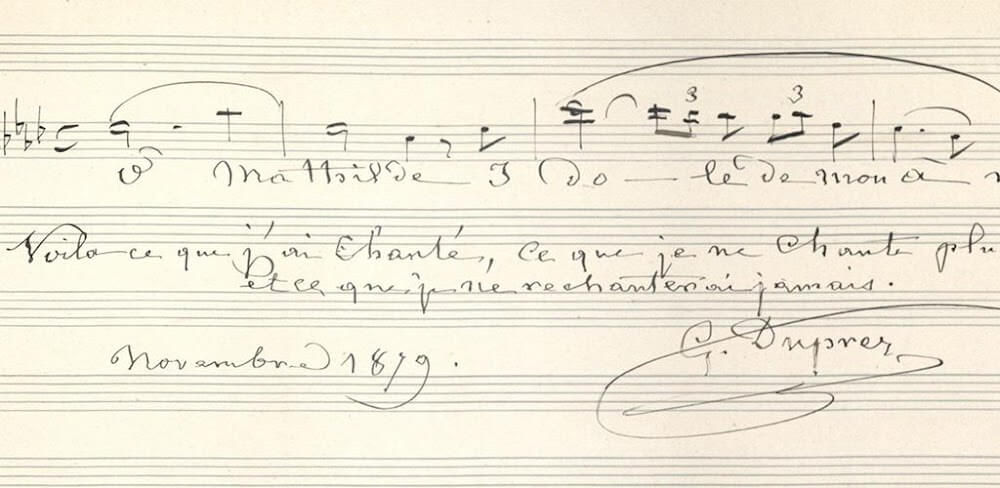 3 3
O Mathilde I do - le de mon â
Voila ce que j'ai Chanté, ce que je ne Chante plu
et ce que je ne rechanterai jamais.
Novembre 1879.
G. Duprez